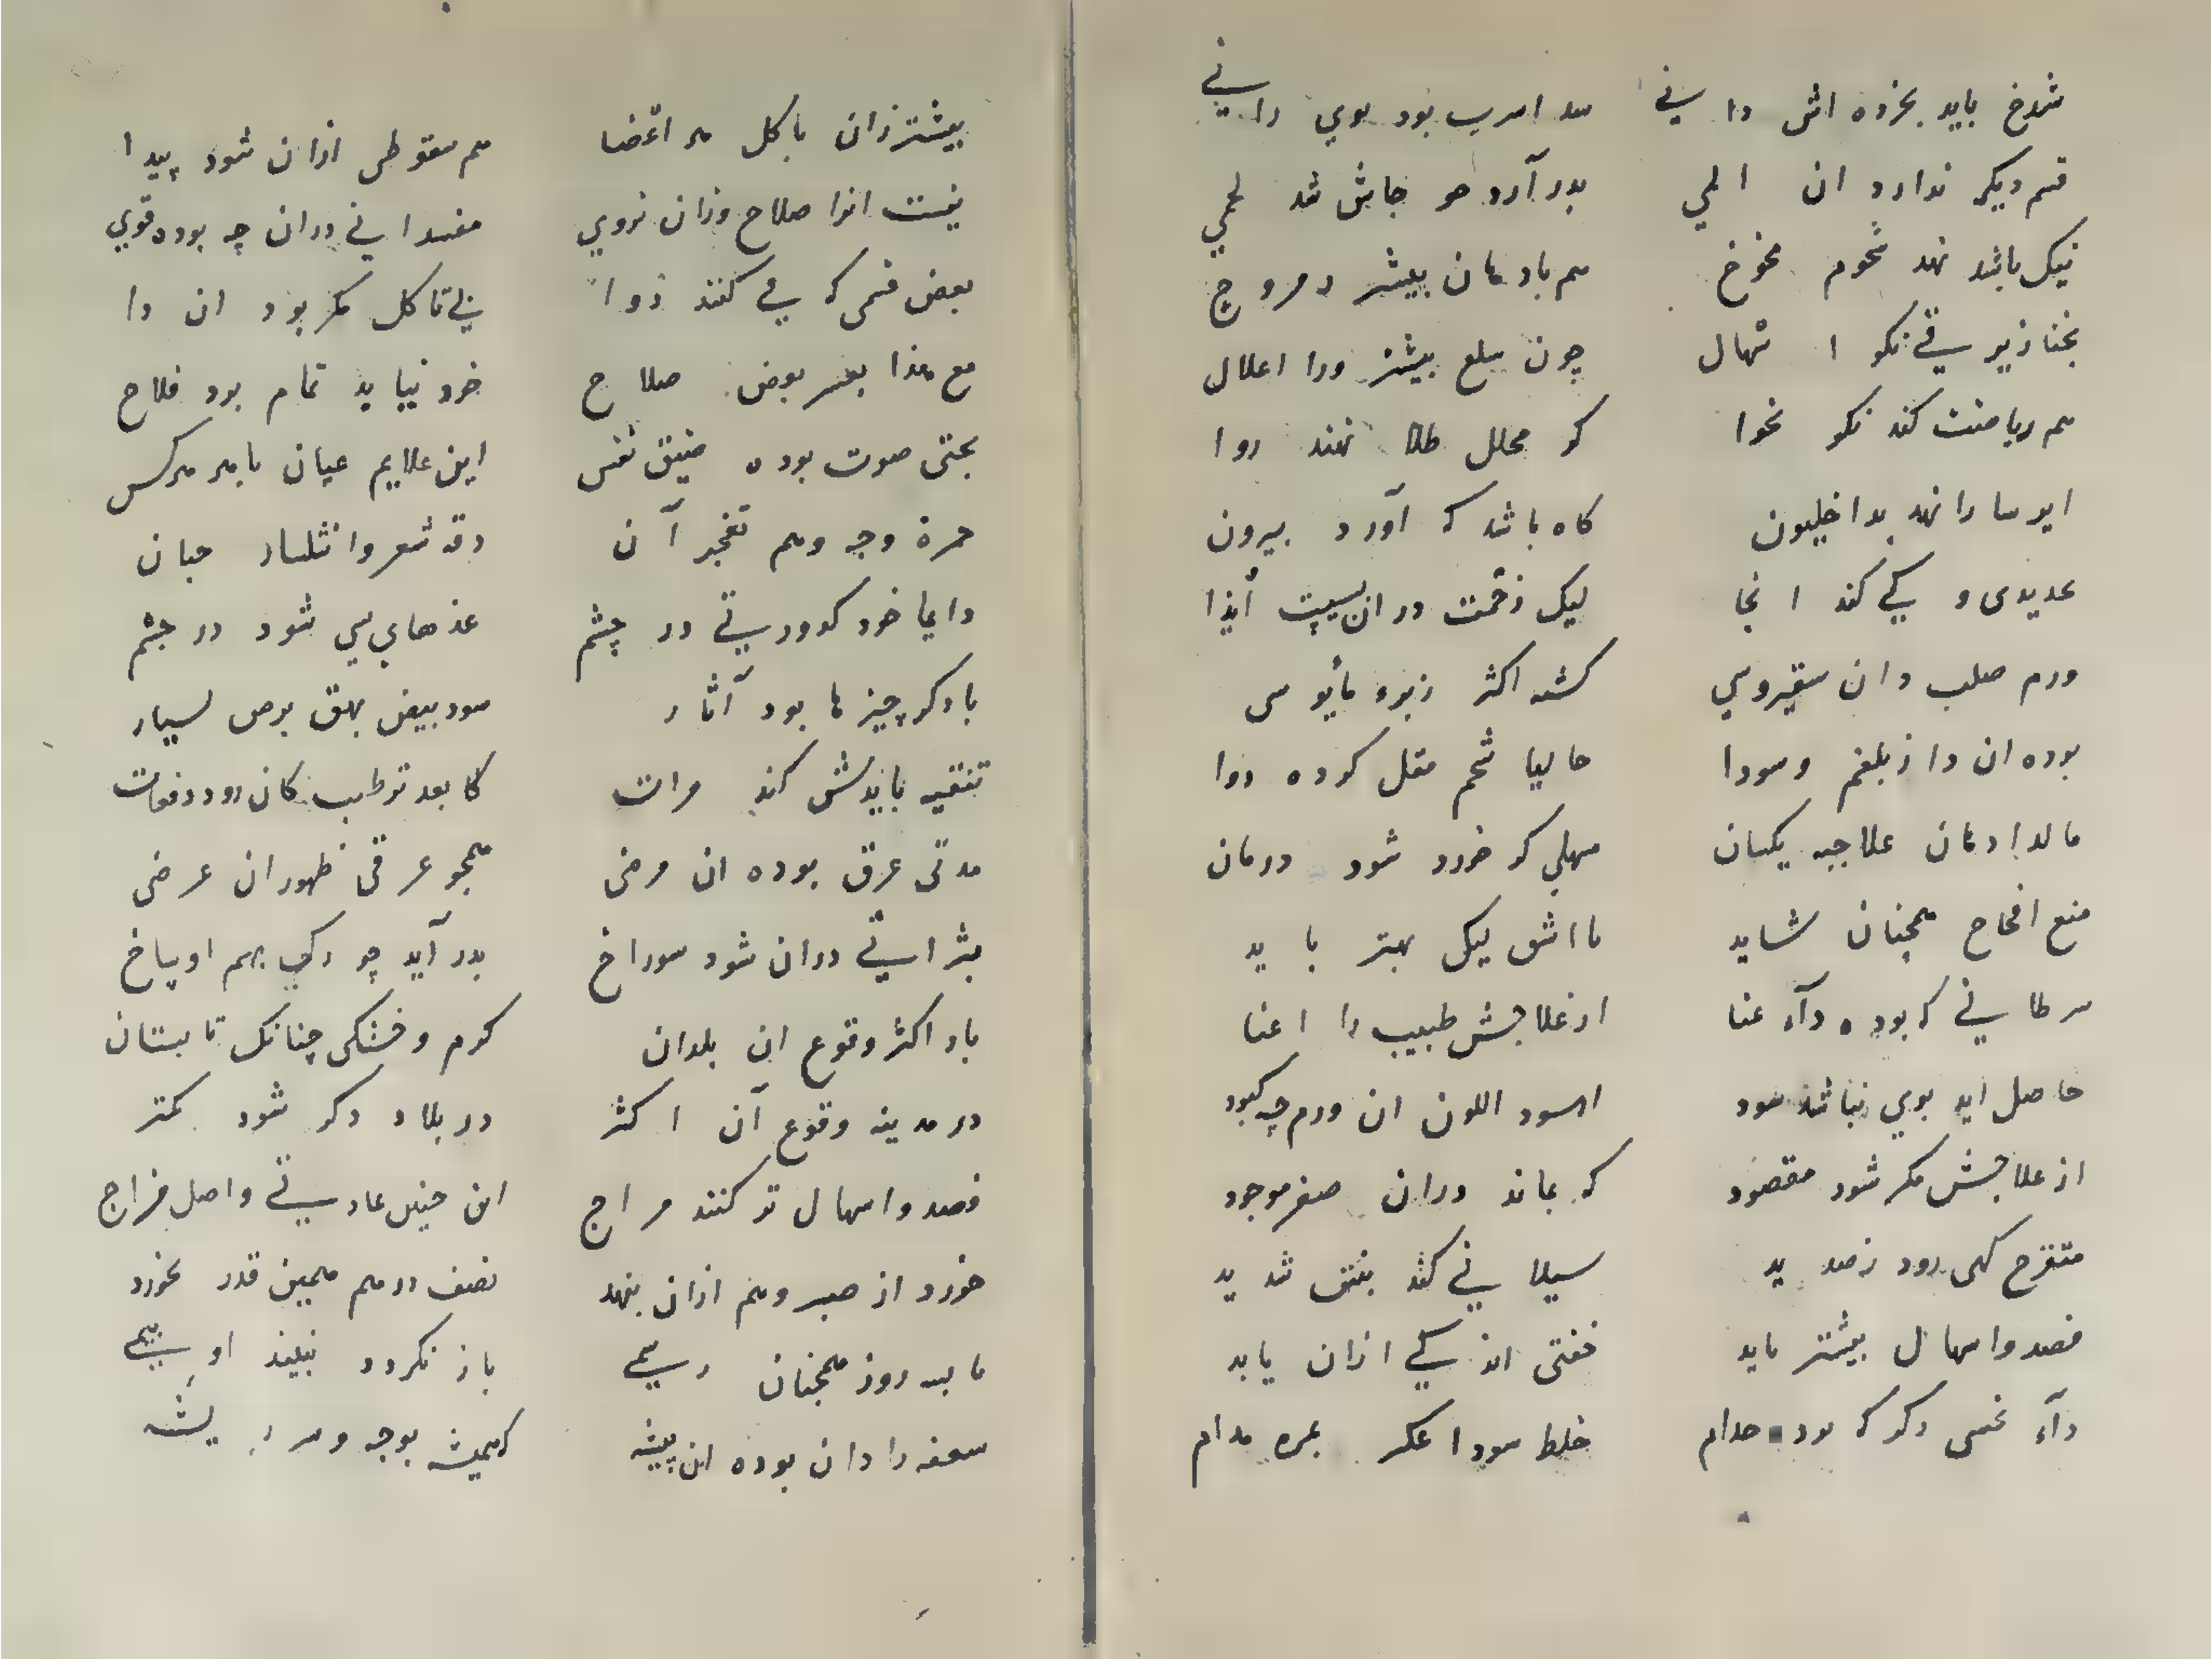 شدخ باید بخرده اش دانی بود بوی رانی
قسم دیگر ندارد ان المی بدر آرد هر جاش شد لحمی
نیک باشد نهد شحوم مخوخ هم بادهان بیشتر و مروخ
بخنازیر قی نکو اسهال چون سلع بیشتر ورا اعلال
هم ریاضت کند نکو نحوا کو محلل طلا نهند روا
ایرسا را نهد بداخلیون کاه باشد که آورد بیرون
حدیدی و کی کند انجا لیک زحمت دران بسیت ایذا
ورم صلب دان سقیروسی کشه اکثر زبره مأیوسی
بوده ان دا زبلغم وسودا حالیا شحم مقل کرده روا
مالد ادهان علاجه یکسان مسهلی کر خورد شود درمان
منع افحاح همچنان شاید مااشق لیک بهتر باید
سرطانی که بوده دآء عنا از علاجش طبیب را اعنا
حاصل اید بوی نباشد سود اسود اللون ان ورم چه کبود
از علاجش مکر شود مقصود که بماند دران صغر موجود
متقرح کهی رود زصدید سیلانی کند بنتن شدید
فصد واسهال بیشتر باید خفتی اندکی ازان یابد
دآء نحسی دکر که بود جدام خلط سودا عکر بمره مدام
بیشتر زان باکل هر اعضا هم سقوطی ازان شود پیدا
نیست انرا صلاح وزان نروی مفسدانی دران چه بوده قوی
بعض قسمی که می کنند دوا بی تاکل مکر بود ان دا
مع هذا بعسر بعض صلاح خود نیاید تمام بود فلاح
بحتی صوت بوده ضیق نفس این علایم عیان بابر هرکس
حمرة وجه وهم تفجر آن دقة شعر وانتثار جبان
دایما خود کدورتی در چشم غدهایی می شود در جشم
بادکر چیزها بود آثار سود بیض بهق برص بسیار
تنقیه بایدش کند مرات کا بعد ترطیب کان رود دفعات
مدتی عرق بوده ان مرضی همجو عرقی ظهور ان عرضی
بثراتی دران شود سوراخ بدر آید چو رکی بهم اوساخ
باد اکثر وقوع این بلدان کرم وخشکی چنانک تابستان
در مدینه وقوع آن اکثر در بلاد دکر شود کمتر
فصد واسهال تر کنند مراج این چنین عادتی واصل مزاج
خورد از صبر وهم ازان بنهد نصف درهم همین قدر بخورد
تا سه روز همچنان رسمی باز نکردد نبیند او بیمی
سعفه را دان بوده ان پیشه کهمیشه بوجه وسر ریشه